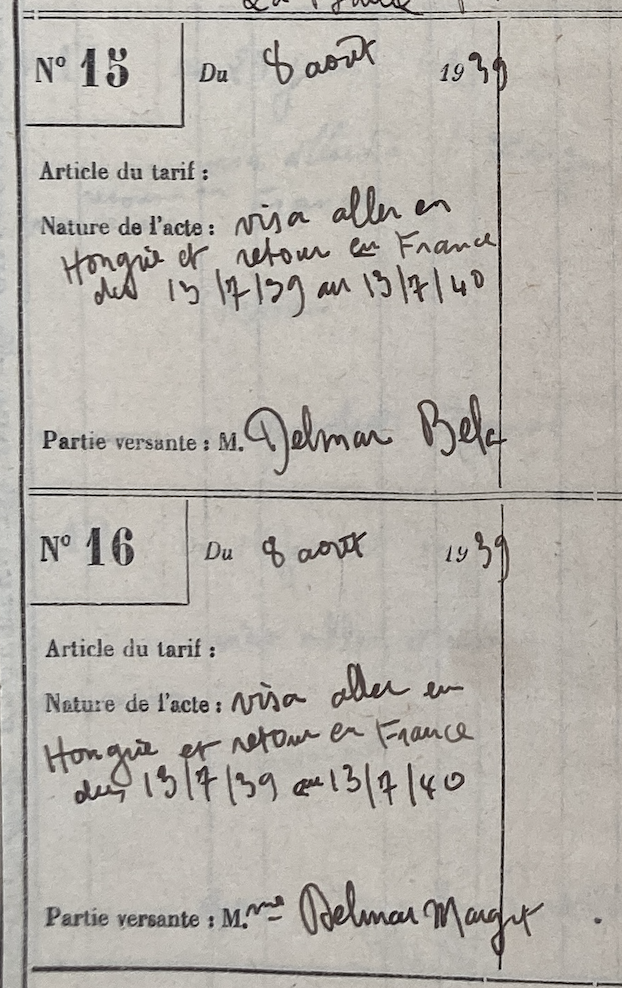 N° 15 Du 8 août 1939
Article du tarif :
Nature de l'acte : visa aller en
Hongrie et retour en France
du 13/7/39 au 13/7/40
Partie versante : M. Delmar Bela
N° 16 Du 8 août 1939
Article du tarif :
Nature de l'acte : visa aller en
Hongrie et retour en France
du 13/7/39 au 13/7/40
Partie versante : M.me Delmar Margit